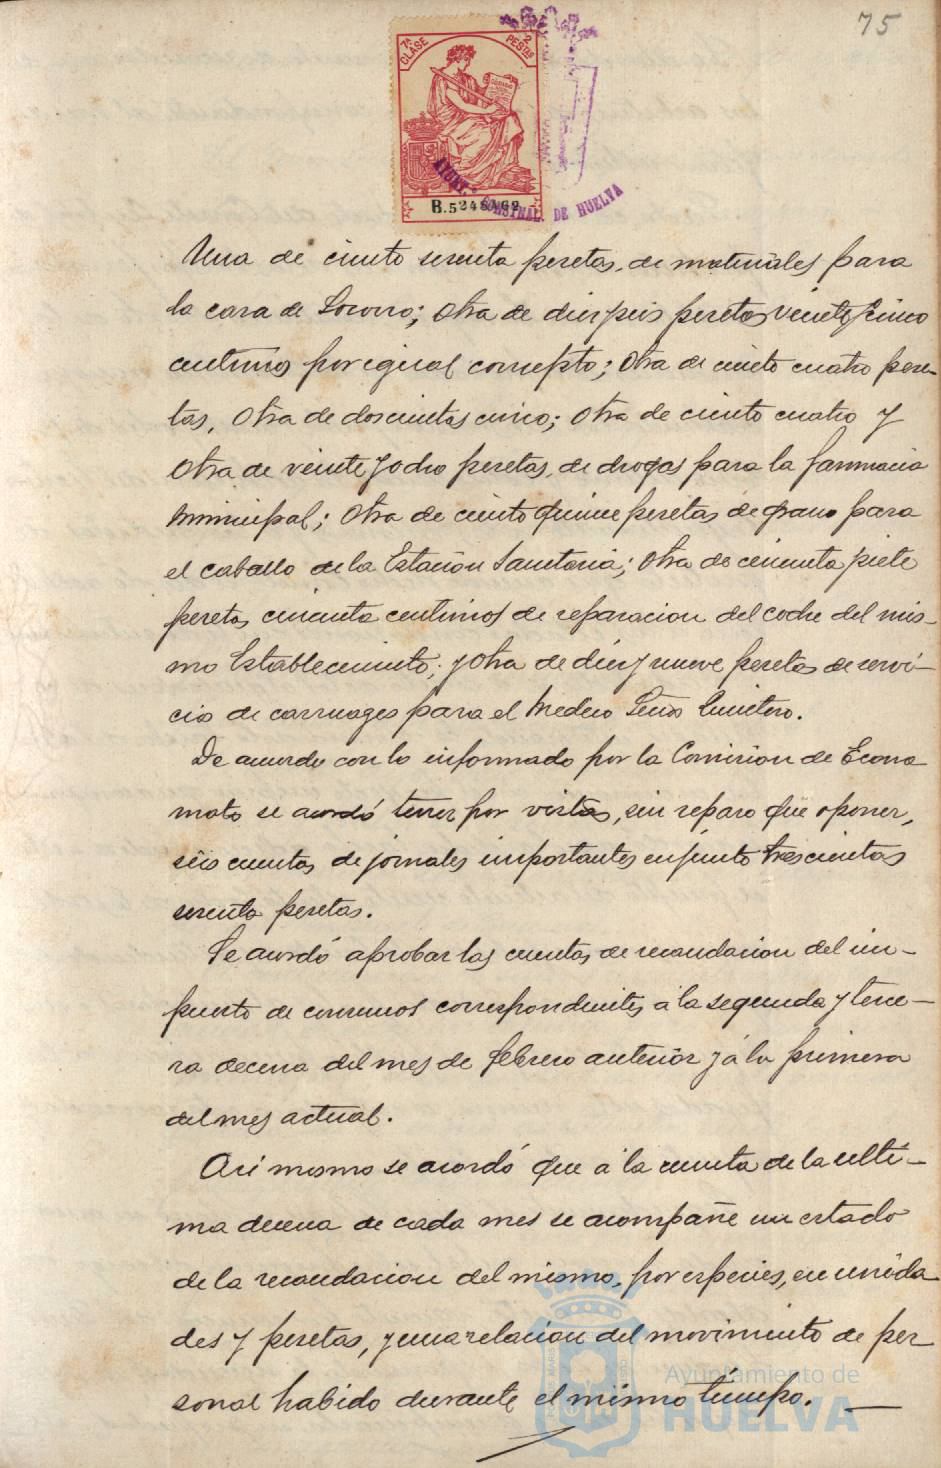 75
7ª CLASE
2 PESTAS
B.5248462
AYUNT. CONSTNAL. DE HUELVA
Una de ciento sesenta pesetas, de materiales para
la casa de Socorro; otra de diez y seis pesetas veinte y cinco
centimos por igual concepto; otra de ciento cuatro pese-
tas, otra de doscientas cinco; otra de ciento cuatro y
otra de veinte y ocho pesetas, de drogas para la farmacia
municipal; otra de ciento quince pesetas de grano para
el caballo de la Estación Sanitaria; otra de cincuenta y siete
pesetas cincuenta centimos de reparacion del coche del mis-
mo Establecimiento; y otra de diez y nueve pesetas de servi-
cio de carruages para el Medico Señor Quintero.
De acuerdo con lo informado por la Comision de Econo
mato se acordó tener por vistas, sin reparo que oponer,
seis cuentas de jornales importantes en junto trescientas
sesenta pesetas.
Se acordó aprobar las cuentas de recaudacion del im-
puesto de consumos correspondientes á la segunda y terce-
ra decena del mes de febrero anterior y á la primera
del mes actual.
Asi mismo se acordó que á la cuenta de la ulti-
ma decena de cada mes se acompañe un estado
de la recaudacion del mismo, por especies, en unida
des y pesetas, y una relacion del movimiento de per
sonal habido durante el mismo tiempo.
Ayuntamiento de
HUELVA